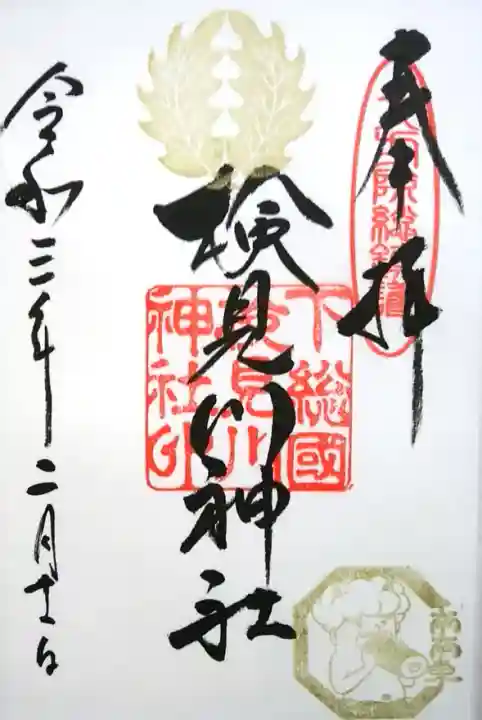 奉拝
検見川神社
下総國
検見川
神社印
令和三年二月十一日